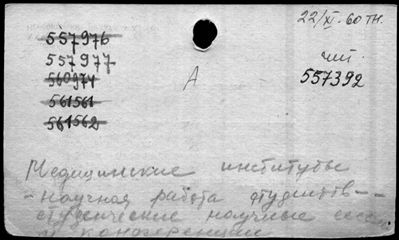 22/XI-60 тн.
557976
557977
560974
561561
561562
А
чит.
557392
Медицинские институты
- научная работа студентов -
студенческие научные сессии
и конференции